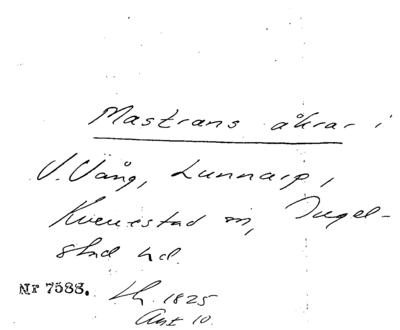 Mastrans åkrar i
V. Vång, Lunnarp,
Kverrestad m, Ingel-
stad hd.
Nr 7588. Lh. 1825
Ant 10.